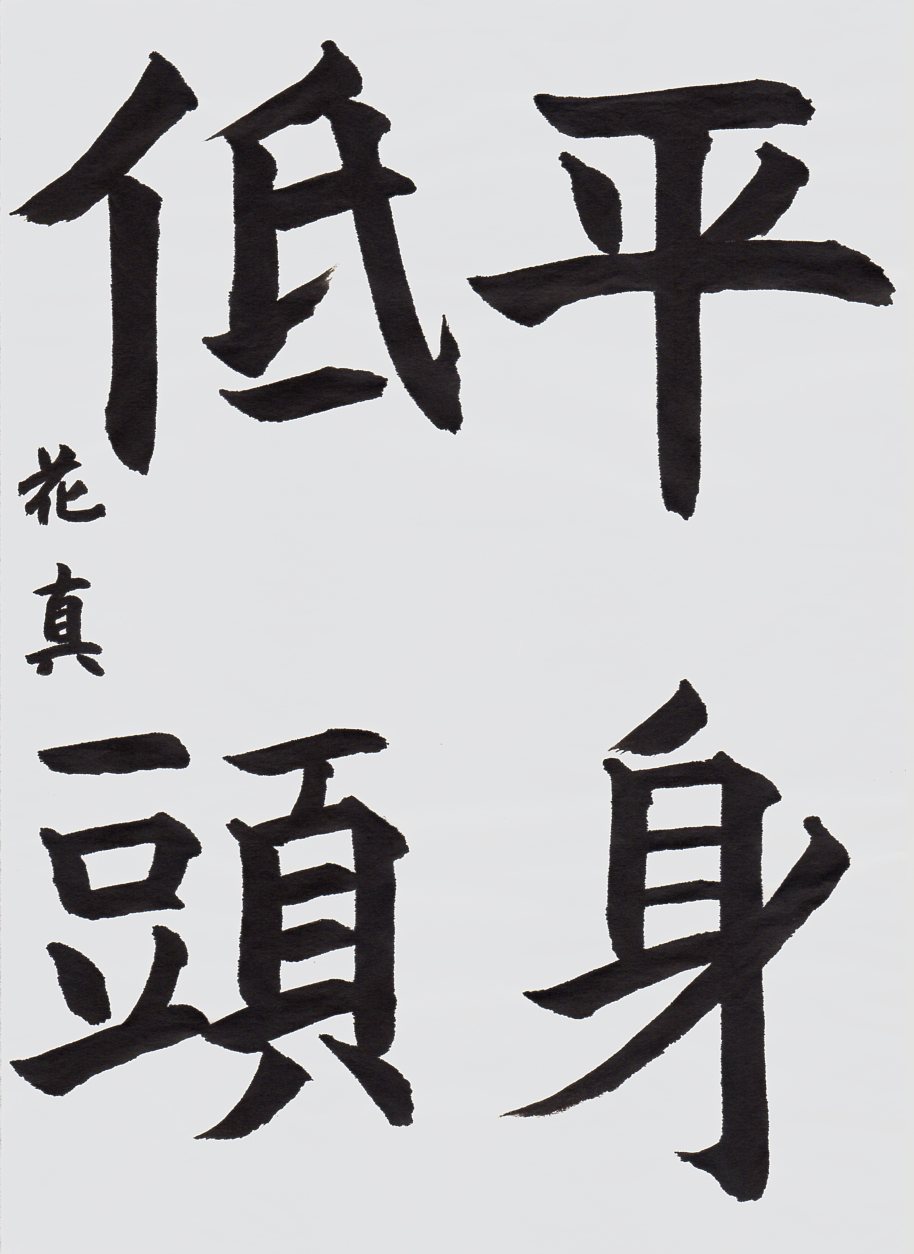 平身
低頭
花真